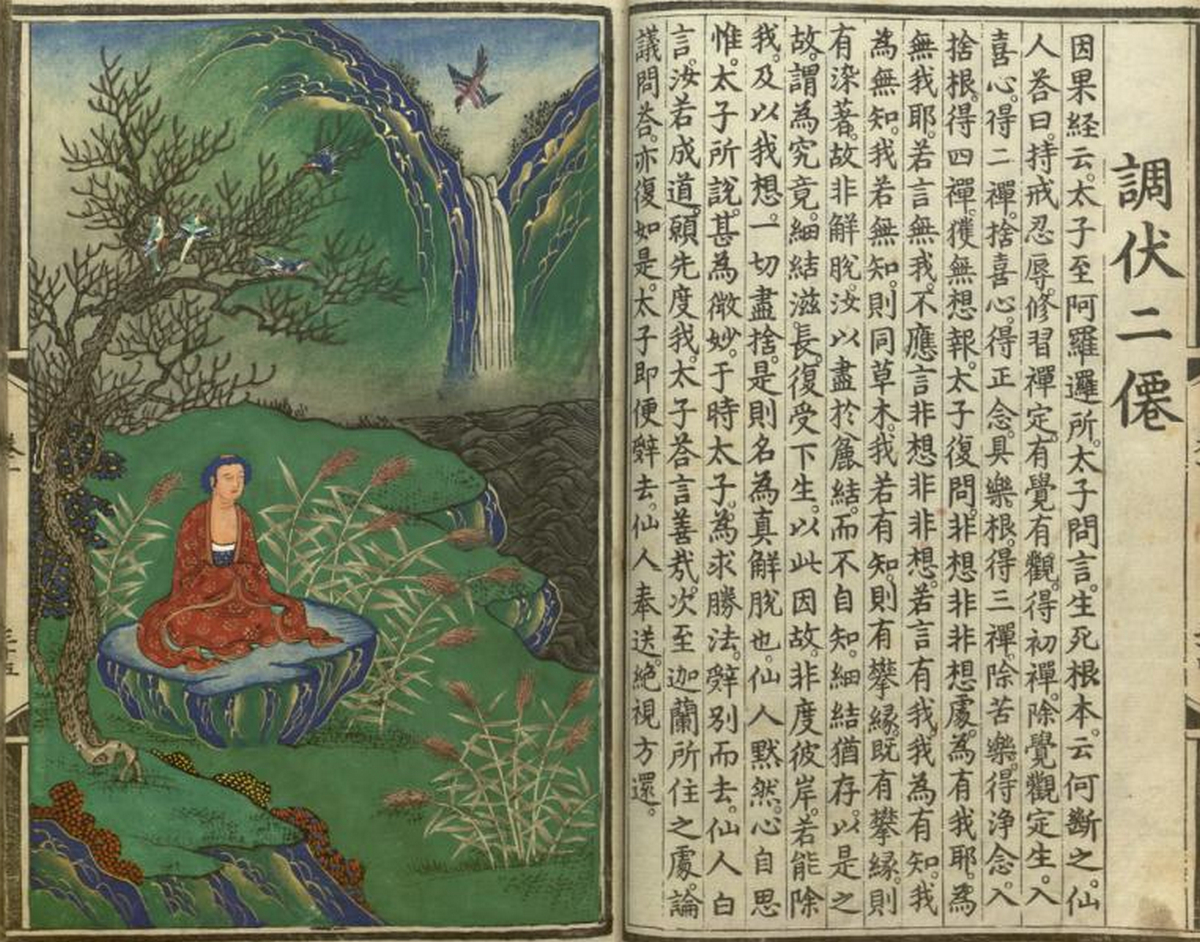 調伏二僊
因果経云。太子至阿羅邏所。太子問言。生死根本。云何斷之。仙
人荅曰。持戒忍辱。修習禪定。有覺有觀。得初禪。除覺觀定生。入
喜心。得二禪。捨喜心。得正念。具樂根。得三禪。除苦樂。得浄念。入
捨根。得四禪。獲無想報。太子復問。非想非非想處。為有我耶。為
無我耶。若言無我。不應言非想非非想。若言有我。我為有知。我
為無知。我若無知。則同草木。我若有知。則有攀縁。既有攀縁。則
有染著。故非解脫。汝以盡於麄結。而不自知。細結猶存。以是之
故。謂為究竟。細結滋長。復受下生。以此因故。非度彼岸。若能除
我。及以我想。一切盡捨。是則名為真解脫也。仙人黙然。心自思
惟。太子所說。甚為微妙。于時太子。為求勝法。辭別而去。仙人白
言。汝若成道。願先度我。太子荅言善㢤。次至迦蘭所住之處。論
議問荅。亦復如是。太子即便辭去。仙人奉送。絕視方還。